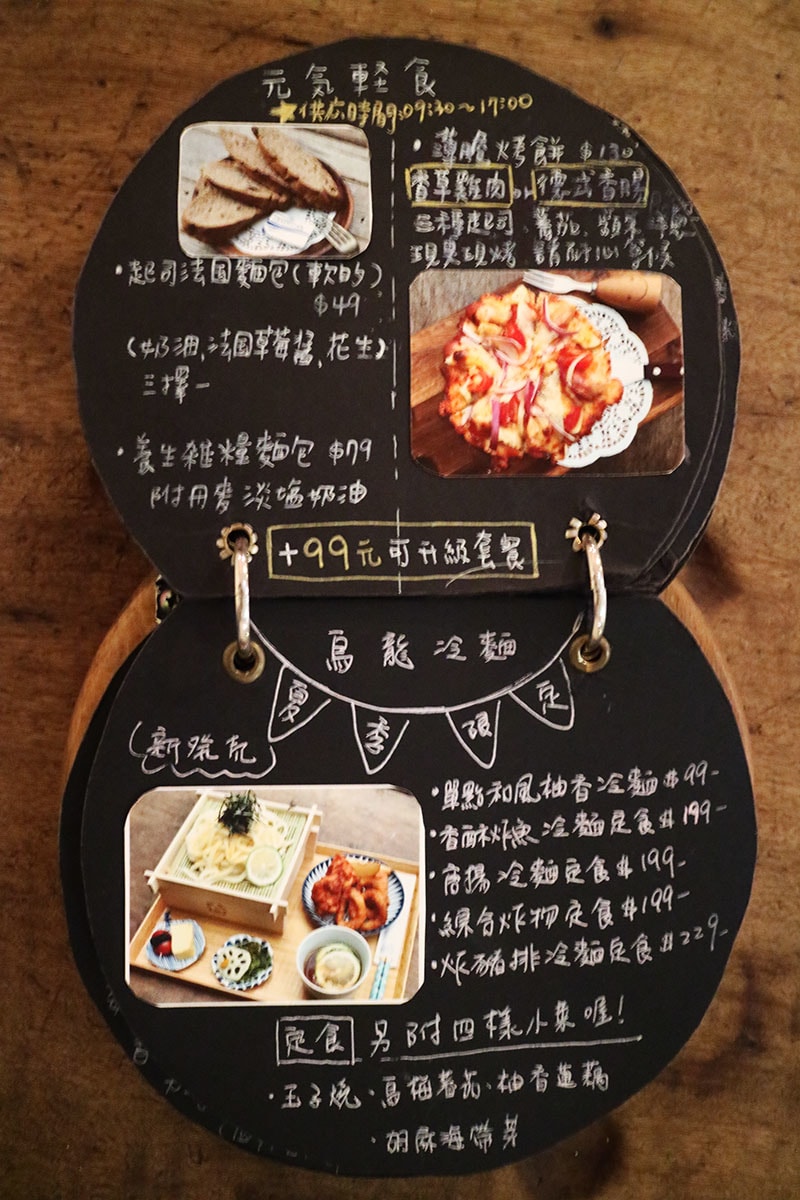 元気軽食
★供応時間:09:30~17:00
・起司法国麵包(軟的)
$49
(奶油、法国草莓醬、花生)
三擇一
・養生雜糧麵包 $79
附丹麥淡塩奶油
・薄脆烤餅 $130
香草雞肉or德式香腸
三種起司、蕃茄、
現果現烤 請耐心等候
+99元可升級套餐
烏龍冷麵
夏季限定
新発売
・單點和風柚香冷麵$99-
・香酥炸魚冷麵定食$199-
・唐揚冷麵定食$199-
・綜合炸物定食$199-
・炸豬排冷麵定食$229-
定食 另附四樣小菜喔!
・玉子燒、高梅蕃茄、柚香蓮藕
・胡麻海帶芽